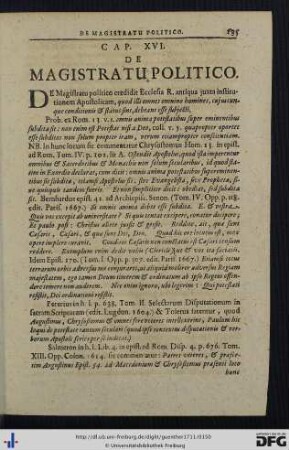 DE MAGISTRATU POLITICO. 635
CAP. XVI.
DE
MAGISTRATU POLITICO.
DE Magistratu politico credidit Ecclesia R. antiqua juxta institu-
tionem Apostolicam, quod illi omnes omnino homines, cujuscun-
que conditionis & status sint, debeant esse subjecti.
Prob. ex Rom. 13 v. 1. omnis anima potestatibus super eminentibus
subdita sit: non enim est Potestas nisi a Deo, coll. v. 5. quapropter oportet
esse subditos non solum propter iram, verum etiam propter conscientiam.
NB. In hunc locum sic commentatur Chrysostomus Hom. 23. in epist.
ad Rom. Tom. IV. p. 
& omnibus Sacerdotibus & Monachis non solum secularibus, id quod sta-
tim in Exordio declarat, cum dicit: omnis anima potestatibus superemi-
nentibus sit subdita, etiamsi Apostolus sis, sive Evangelista, sive Propheta, si-
ve quisquis tandem fueris. Et non simpliciter dicit: obediat, sed subdita
sit. Bernhardus epist. 42. ad Archiepisc. Senon. (Tom. IV. Opp. p. 
edit. Paris. 1667.) si omnis anima debet esse subdita. E. & vestra.
Quis vos excepit ab universitate? Si quis tentat excipere, conatur decipere;
Et paulo post: Christus aliter jussit & gessit. Reddite, ait, quæ sunt
Cæsaris, Cæsari, & quæ sunt Dei, Deo. Quod 
opere implere curavit. Conditor Cæsaris non cunctatus est Cæsari censum
reddere. Exemplum enim dedit vobis
Idem Epist. 170. (Tom. I. Opp. p. 157. edit. Paris. 1667.) Etiamsi totus
terrarum orbis adversum me conjuraret, ut aliquid molirer adversus Regiam
majestatem, ego tamen Deum timerem & ordinatum ab ipso Regem offen-
dere temere non auderem. Nec enim ignoro, ubi legerim: Qui potestati
resistit, Dei ordinationi resistit.
in h. l. p. 638. Tom. II. Selectarum Disputationum in
sacram Scripturam (edit. Lugdun. 1604.) & Toletus fatentur, quod
Augustinus, Chrysostomus & omnes fere veteres intellexerint, Paulum hic
loqui de potestate tantum seculari
borum Apostoli scriptores indicat.)
Salmeron in h. l. Lib. 4. in epist. ad Rom. Disp. 4. p. 676. Tom.
XIII. Opp. Colon. 1614. sic commentatur: Patres veteres, & præser-
tim Augustinus Epist. 54. ad Macedonium & Chrysostomus præsenti loco
hunc
http://dl.ub.uni-freiburg.de/diglit/guenther1711/0159
gefördert durch die DFG